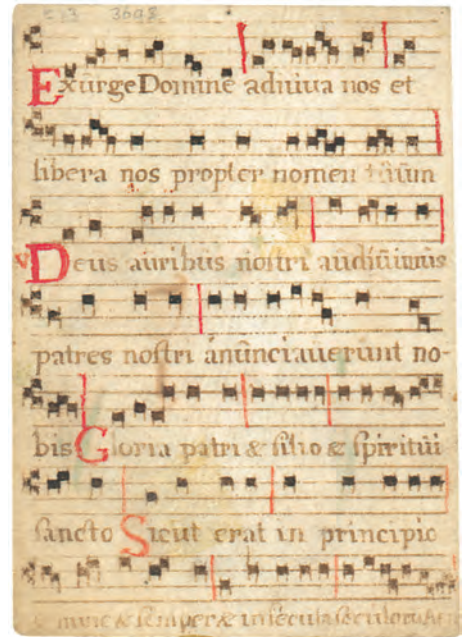 3698
Exurge Domine adiuua nos et
libera nos propter nomen tuum
Deus auribus nostri audiuimus
patres nostri anunciauerunt no-
bis Gloria patri & filio & spiritui
sancto Sicut erat in principio
& nunc & semper & in secula seculorum